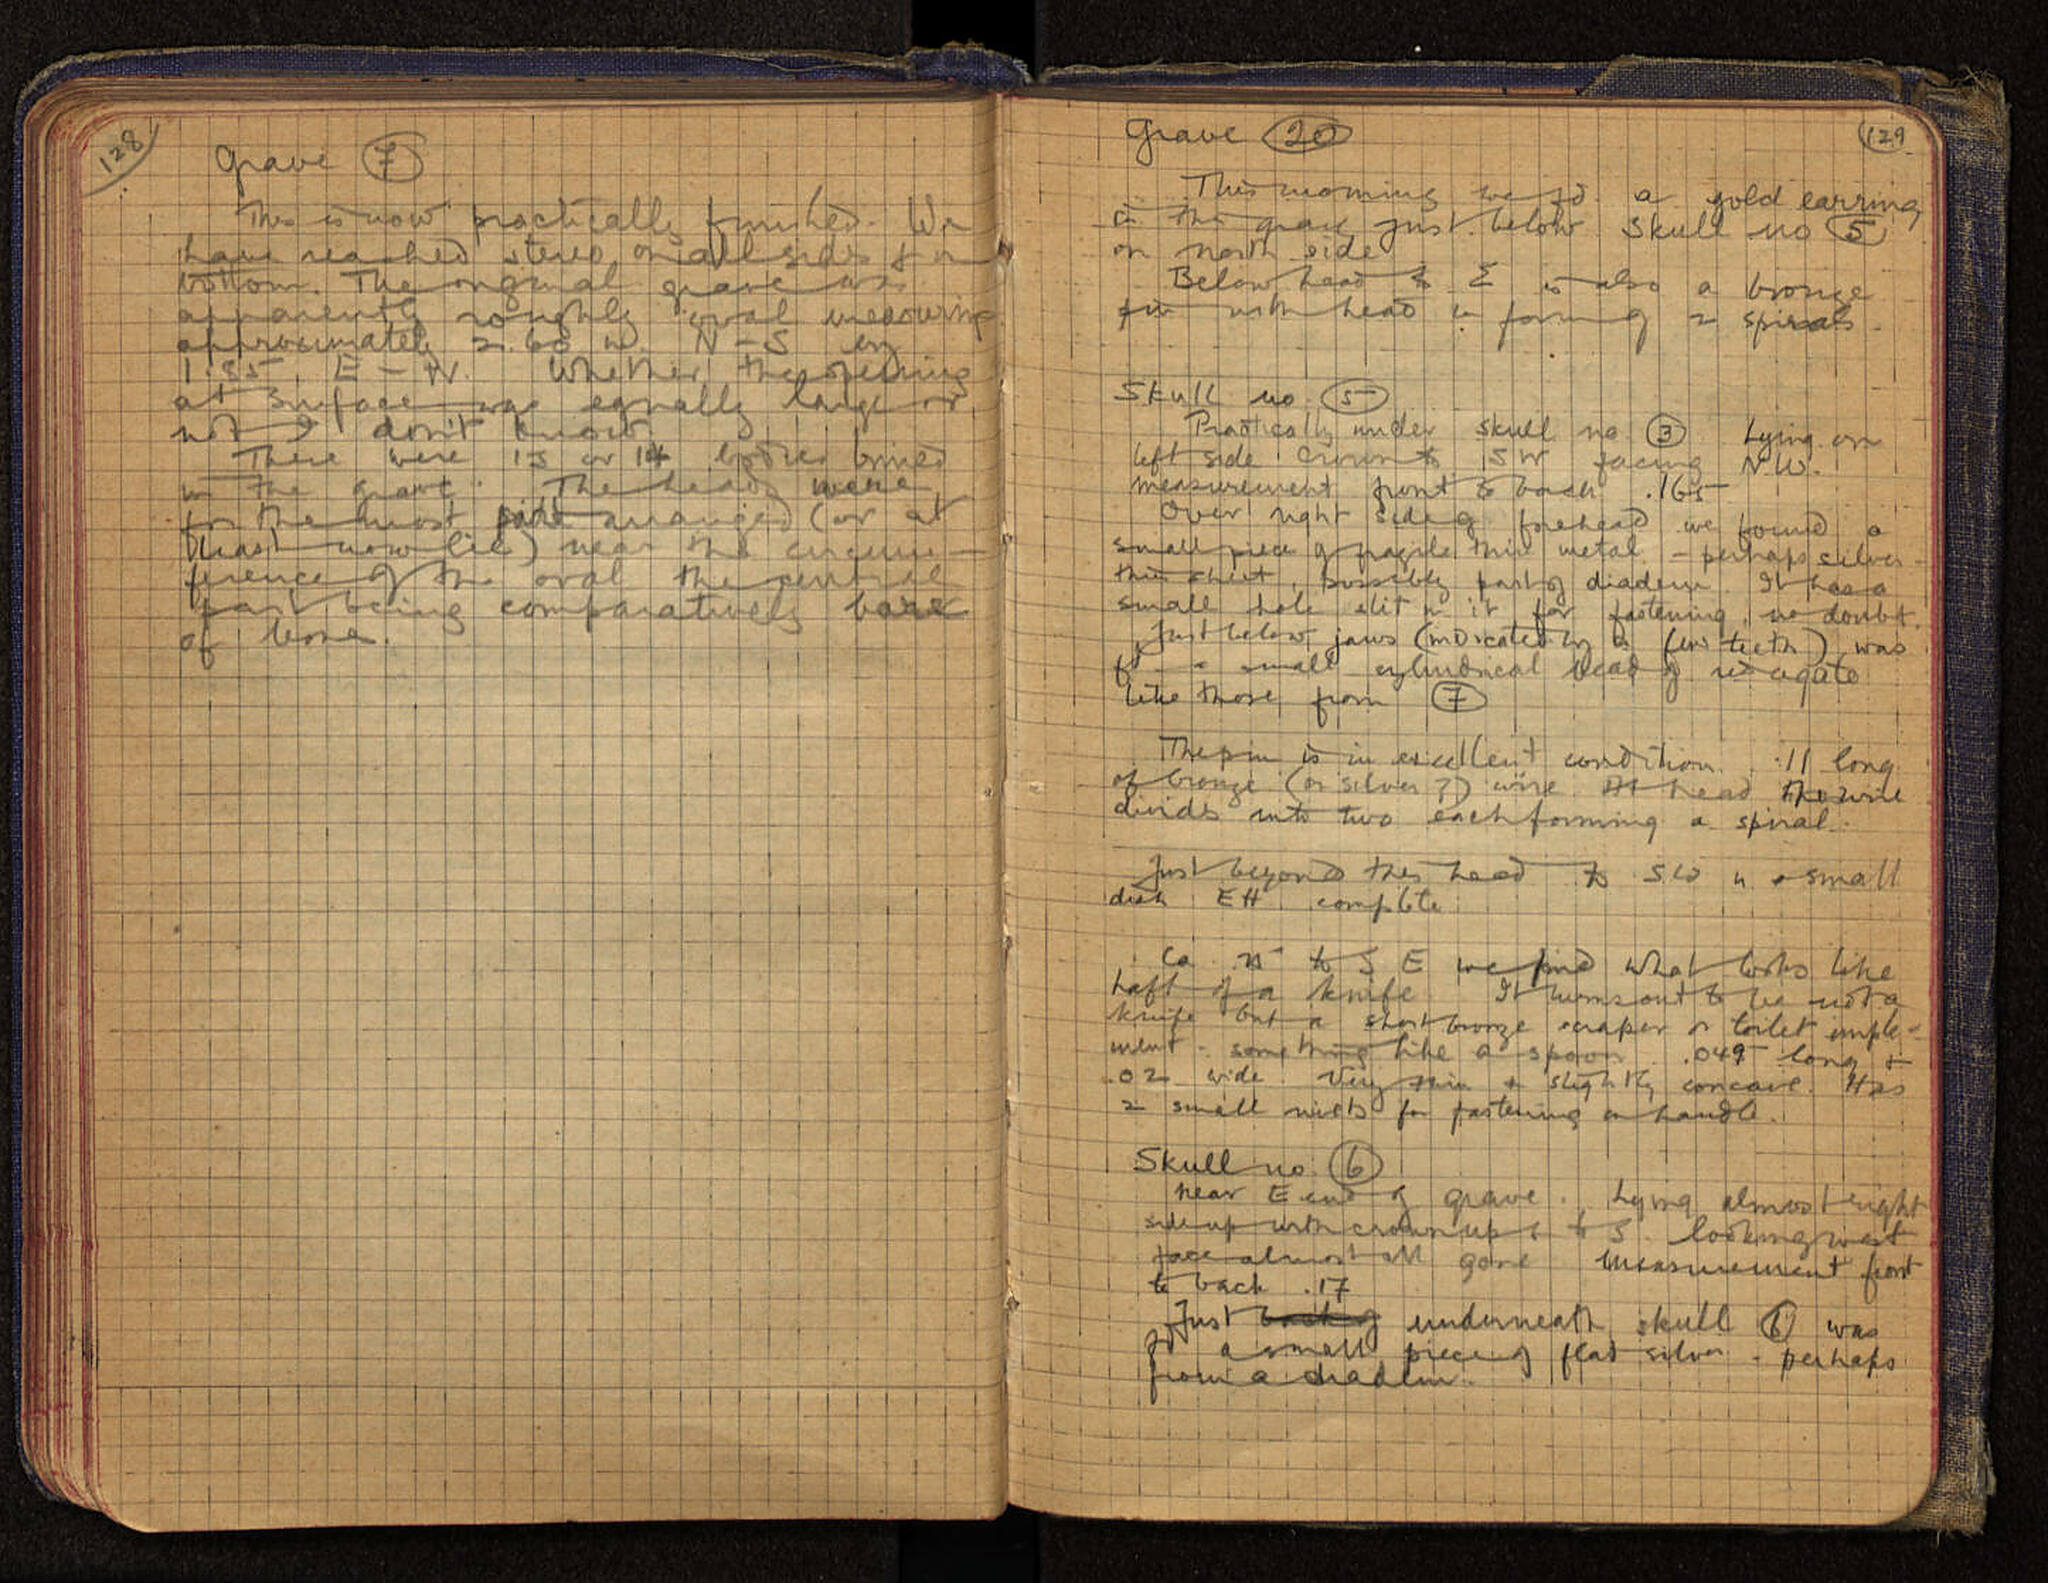 128
Grave 7
This is now practically finished. We
have reached stereo on all sides & on
bottom. The original grave was
apparently roughly oval measuring
approximately 2.60 m. N-S by
1.85 E-W. Whether the opening
at surface was equally large or
not I don't know.
There were 13 or 14 bodies buried
in the grave. The heads were
for the most part arranged (or at
least now lie) near the circum-
ference of the oval the central
part being comparatively bare
of bone.
129
Grave 20
This morning we fd. a gold earring
in this grave just below Skull no 5
on north side
Below head to E is also a bronze
pin with head forming 2 spirals.
Skull no. 5
Practically under skull no. 3 Lying on
left side crown to SW facing N.W.
measurement front to back .165
Over right side of forehead we found a
small piece of fragile thin metal - perhaps silver -
thin sheet, possibly part of diadem. It has a
small hole slit in it for fastening, no doubt.
Just below jaws (indicated by a few teeth) was
fd a small cylindrical bead of agate
like those from 7
The pin is in excellent condition. .11 long
of bronze (or silver?) wire. At head the wire
divides into two each forming a spiral.
Just beyond this head to SW is a small
dish EH complete
Ca to S E we find what looks like
haft of a knife. It turns out to be not a
knife but a short bronze scraper or toilet imple-
ment - something like a spoon. .049 long &
.02 wide. Very thin & slightly concave. Has
2 small rivets for fastening on handle.
Skull no. 6
near E end of grave. Lying almost right
side up with crown up & to S. looking west
face almost all gone measurement front
to back .17
Just underneath skull 6 was
fd a small piece of flat silver - perhaps
from a diadem.